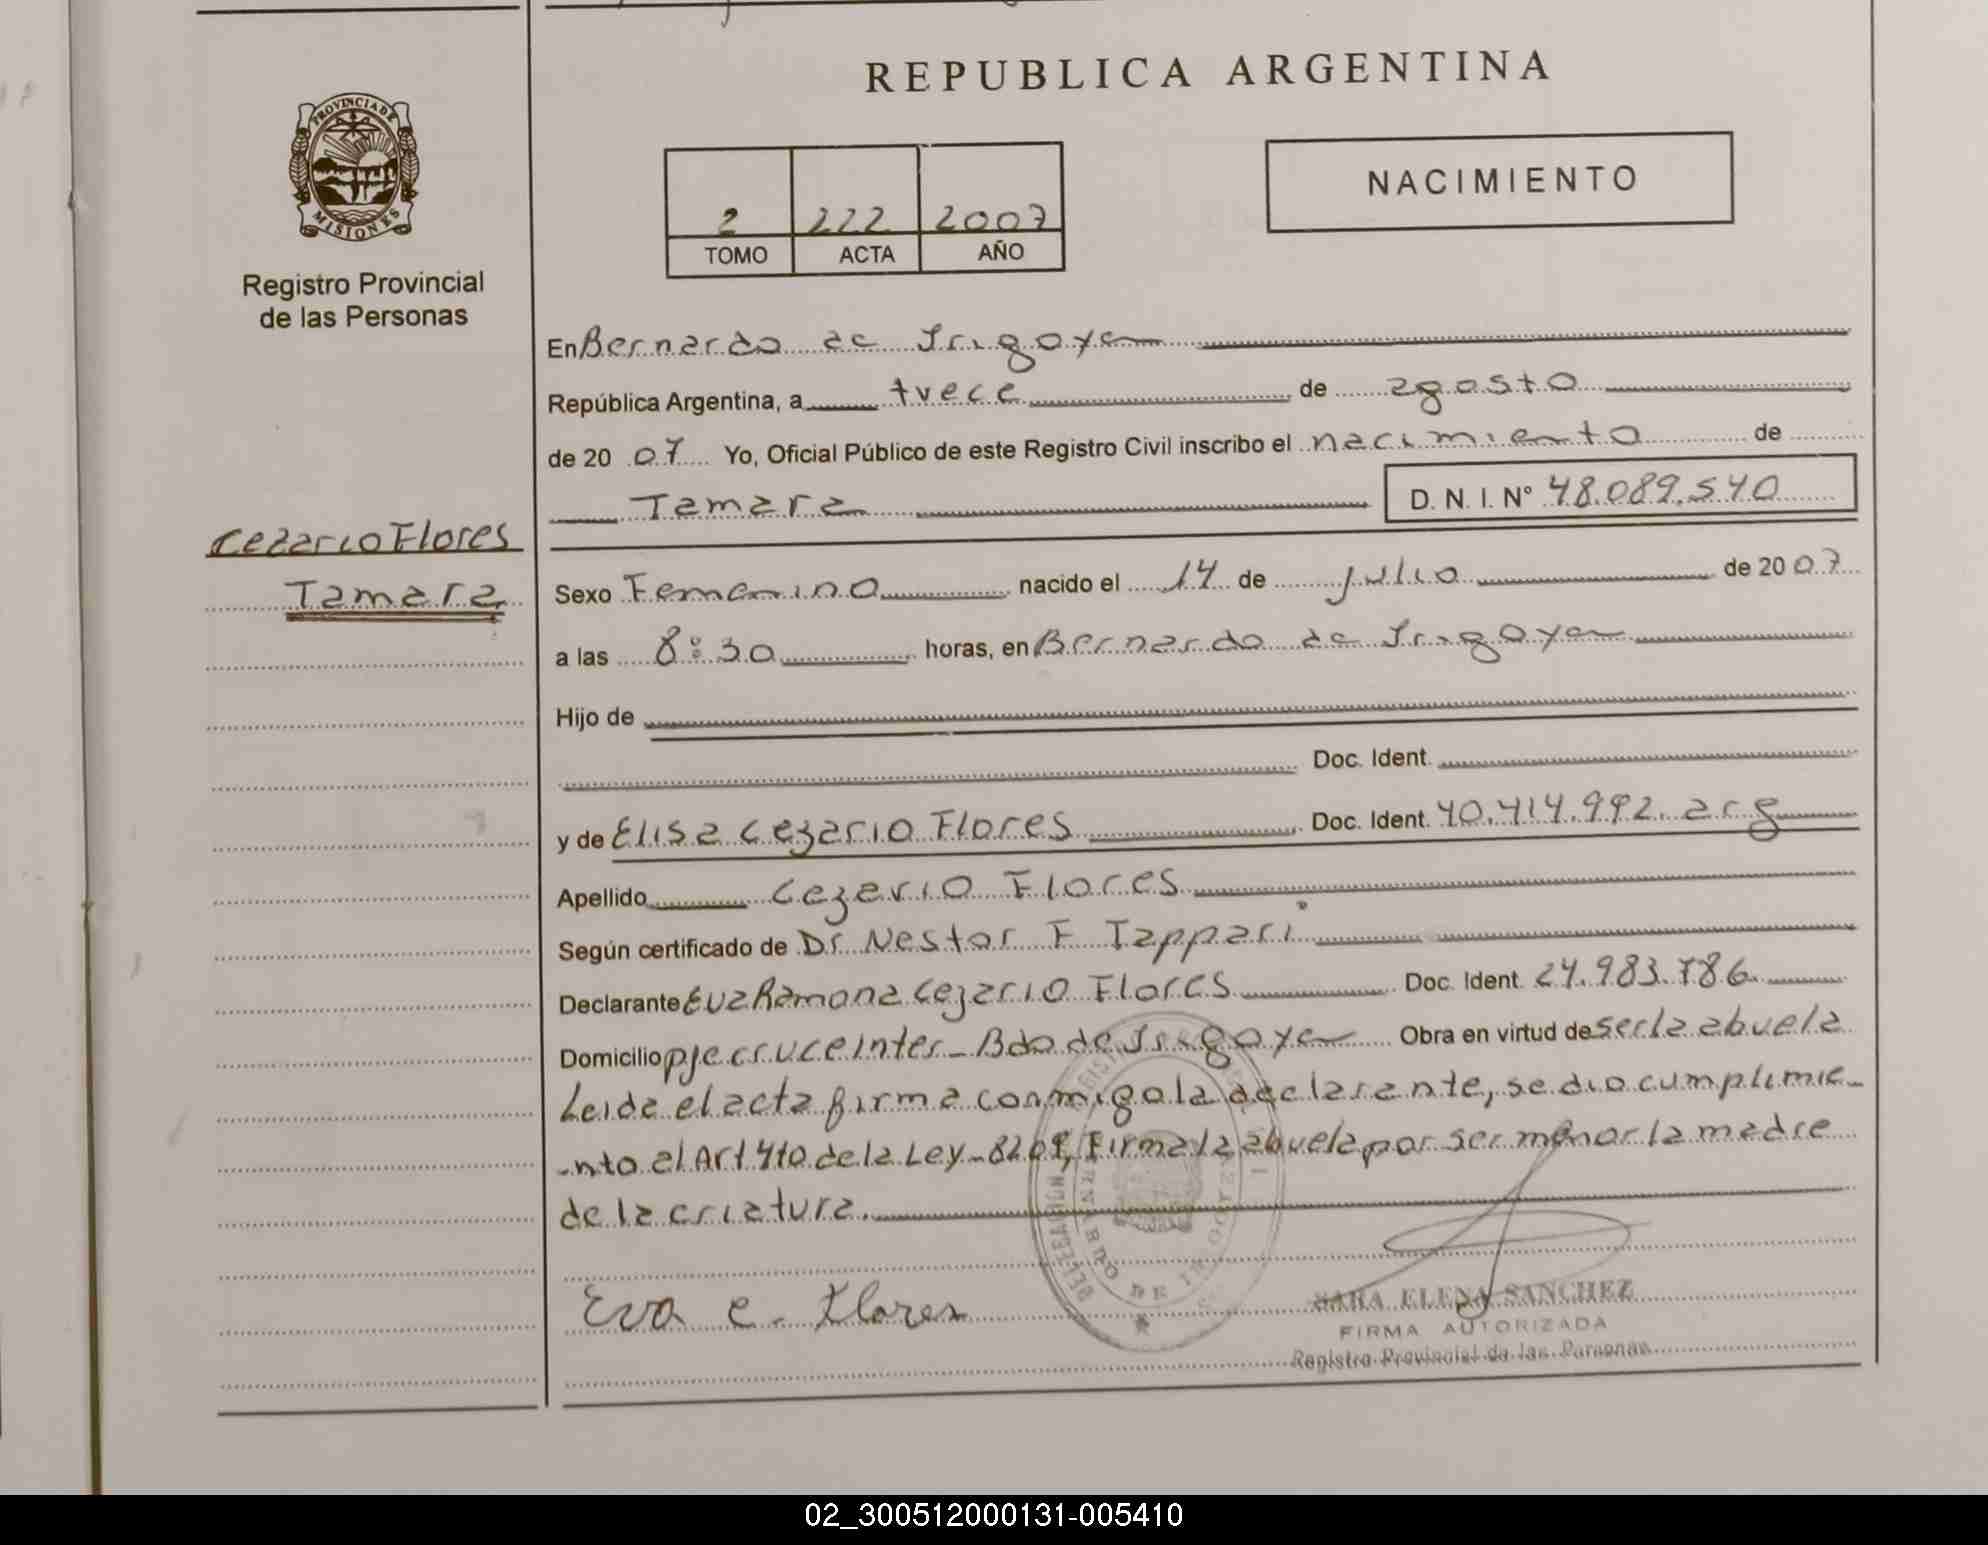 REPUBLICA ARGENTINA
PROVINCIA DE
MISIONES
Registro Provincial
de las Personas
2 222 2007
TOMO ACTA AÑO
NACIMIENTO
En Bernardo de Irigoyen
República Argentina, a trece de agosto
de 2007 Yo, Oficial Público de este Registro Civil inscribo el nacimiento de
Tamara D. N. I. Nº 48.089.540
Cezario Flores
Tamara
Sexo Femenino nacido el 14 de julio de 2007
a las 8:30 horas, en Bernardo de Irigoyen
Hijo de
Doc. Ident.
y de Elisa Cezario Flores Doc. Ident. 40.414.992. arg
Apellido Cezario Flores
Según certificado de Dr Nestor F Tappari
Declarante Eva Ramona Cezario Flores Doc. Ident. 24.983.786
Domicilio pje cruce inter_ Bdo de Irigoyen Obra en virtud de ser la abuela
Leida el acta firma conmigo la declarante, se dio cumplimie_
_nto al Art 4to de la Ley_ 8209, Firma la abuela por ser menor la madre
de la criatura.
Eva C. Flores
DELEGACION
BERNARDO DE IRIGOYEN
SARA ELENA SANCHEZ
FIRMA AUTORIZADA
Registro Provincial de las Personas
02_300512000131-005410